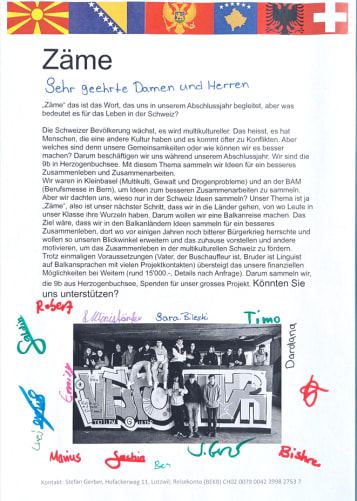 Zäme
Sehr geehrte Damen und Herren
„Zäme“ das ist das Wort, das uns in unserem Abschlussjahr begleitet, aber was
bedeutet es für das Leben in der Schweiz?
Die Schweizer Bevölkerung wächst, es wird multikultureller. Das heisst, es hat
Menschen, die eine andere Kultur haben und es kommt öfter zu Konflikten. Aber
welches sind denn unsere Gemeinsamkeiten oder wie können wir es besser
machen? Darum beschäftigen wir uns während unserem Abschlussjahr. Wir sind die
9b in Herzogenbuchsee. Mit diesem Thema sammeln wir Ideen für ein besseres
Zusammenleben und Zusammenarbeiten.
Wir waren in Kleinbasel (Multikulti, Gewalt und Drogenprobleme) und an der BAM
(Berufsmesse in Bern), um Ideen zum besseren Zusammenarbeiten zu sammeln.
Aber wir dachten uns, wieso nur in der Schweiz Ideen sammeln? Unser Thema ist ja
„Zäme“, also ist unser nächster Schritt, dass wir in die Länder gehen, von wo Leute in
unser Klasse ihre Wurzeln haben. Darum wollen wir eine Balkanreise machen. Das
Ziel wäre, dass wir in den Balkanländern Ideen sammeln für ein besseres
Zusammenleben, dort wo vor einigen Jahren noch bitterer Bürgerkrieg herrschte und
wollen so unseren Blickwinkel erweitern und das zuhause vorstellen und andere
motivieren, um das Zusammenleben in der multikulturellen Schweiz zu fördern.
Trotz einmaligen Voraussetzungen (Vater, der Buschauffeur ist, Bruder ist Linguist
auf Balkansprachen mit vielen Projektkontakten) übersteigt das unsere finanziellen
Möglichkeiten bei Weitem (rund 15'000.-, Details nach Anfrage). Darum sammeln wir,
die 9b aus Herzogenbuchsee, Spenden für unser grosses Projekt. Könnten Sie
uns unterstützen?
Robert
Sara Bleski
Timo
Dardana
Marius
Saskia
Ben
Bishra
Kontakt: Stefan Gerber, Hofackerweg 11, Lotzwil, Reisekonto (BEKB) CH02 0079 0042 3998 2753 7